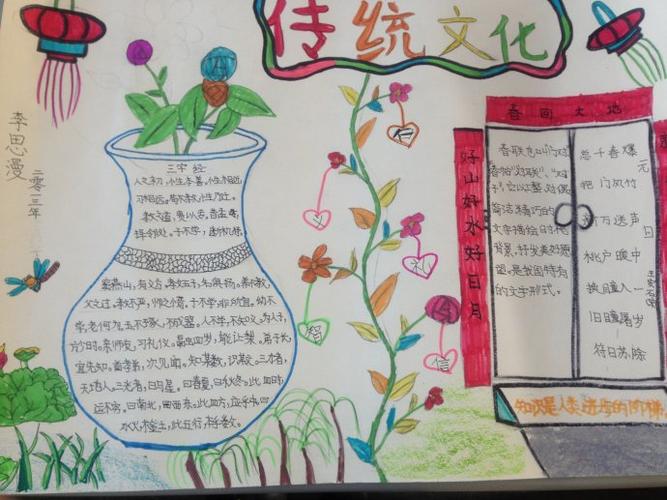 传统文化
李思漫
二零一三年
三字经
人之初,性本善。性相近,
习相远。苟不教,性乃迁。
教之道,贵以专。昔孟母,
择邻处。子不学,断机杼。
窦燕山,有义方。教五子,名俱扬。养不教,
父之过。教不严,师之惰。子不学,非所宜。幼不
学,老何为。玉不琢,不成器。人不学,不知义。为人子,
方少时。亲师友,习礼仪。融四岁,能让梨。弟于长,
宜先知。首孝弟,次见闻。知某数,识某文。三才者,
天地人。三光者,日月星。曰春夏,曰秋冬。此四时,
运不穷。曰南北,曰西东。此四方,应乎中。曰
水火,木金土。此五行,本乎数。
仁
义
礼
智
信
春回大地
好山好水好日月
春联也叫"门对"
"春贴""对联"、"对
子",它以工整、对偶
简洁精巧的
文字描绘时代
背景,抒发美好愿
望,是我国特有
的文字形式。
元日
王安石
爆竹声中一岁除
春风送暖入屠苏
千门万户曈曈日
总把新桃换旧符
知识是人类进步的阶梯